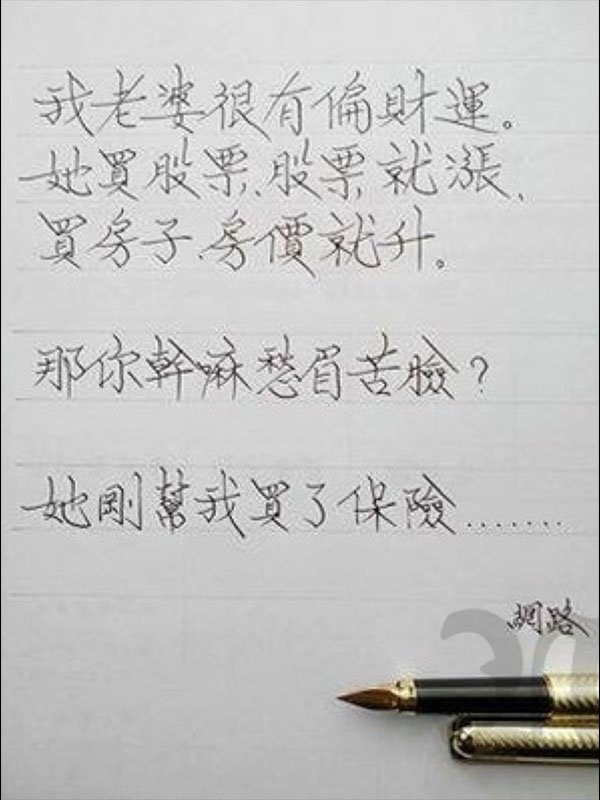 我老婆很有偏財運。
她買股票、股票就漲、
買房子、房價就升。
那你幹嘛愁眉苦臉？
她剛幫我買了保險.......
網路